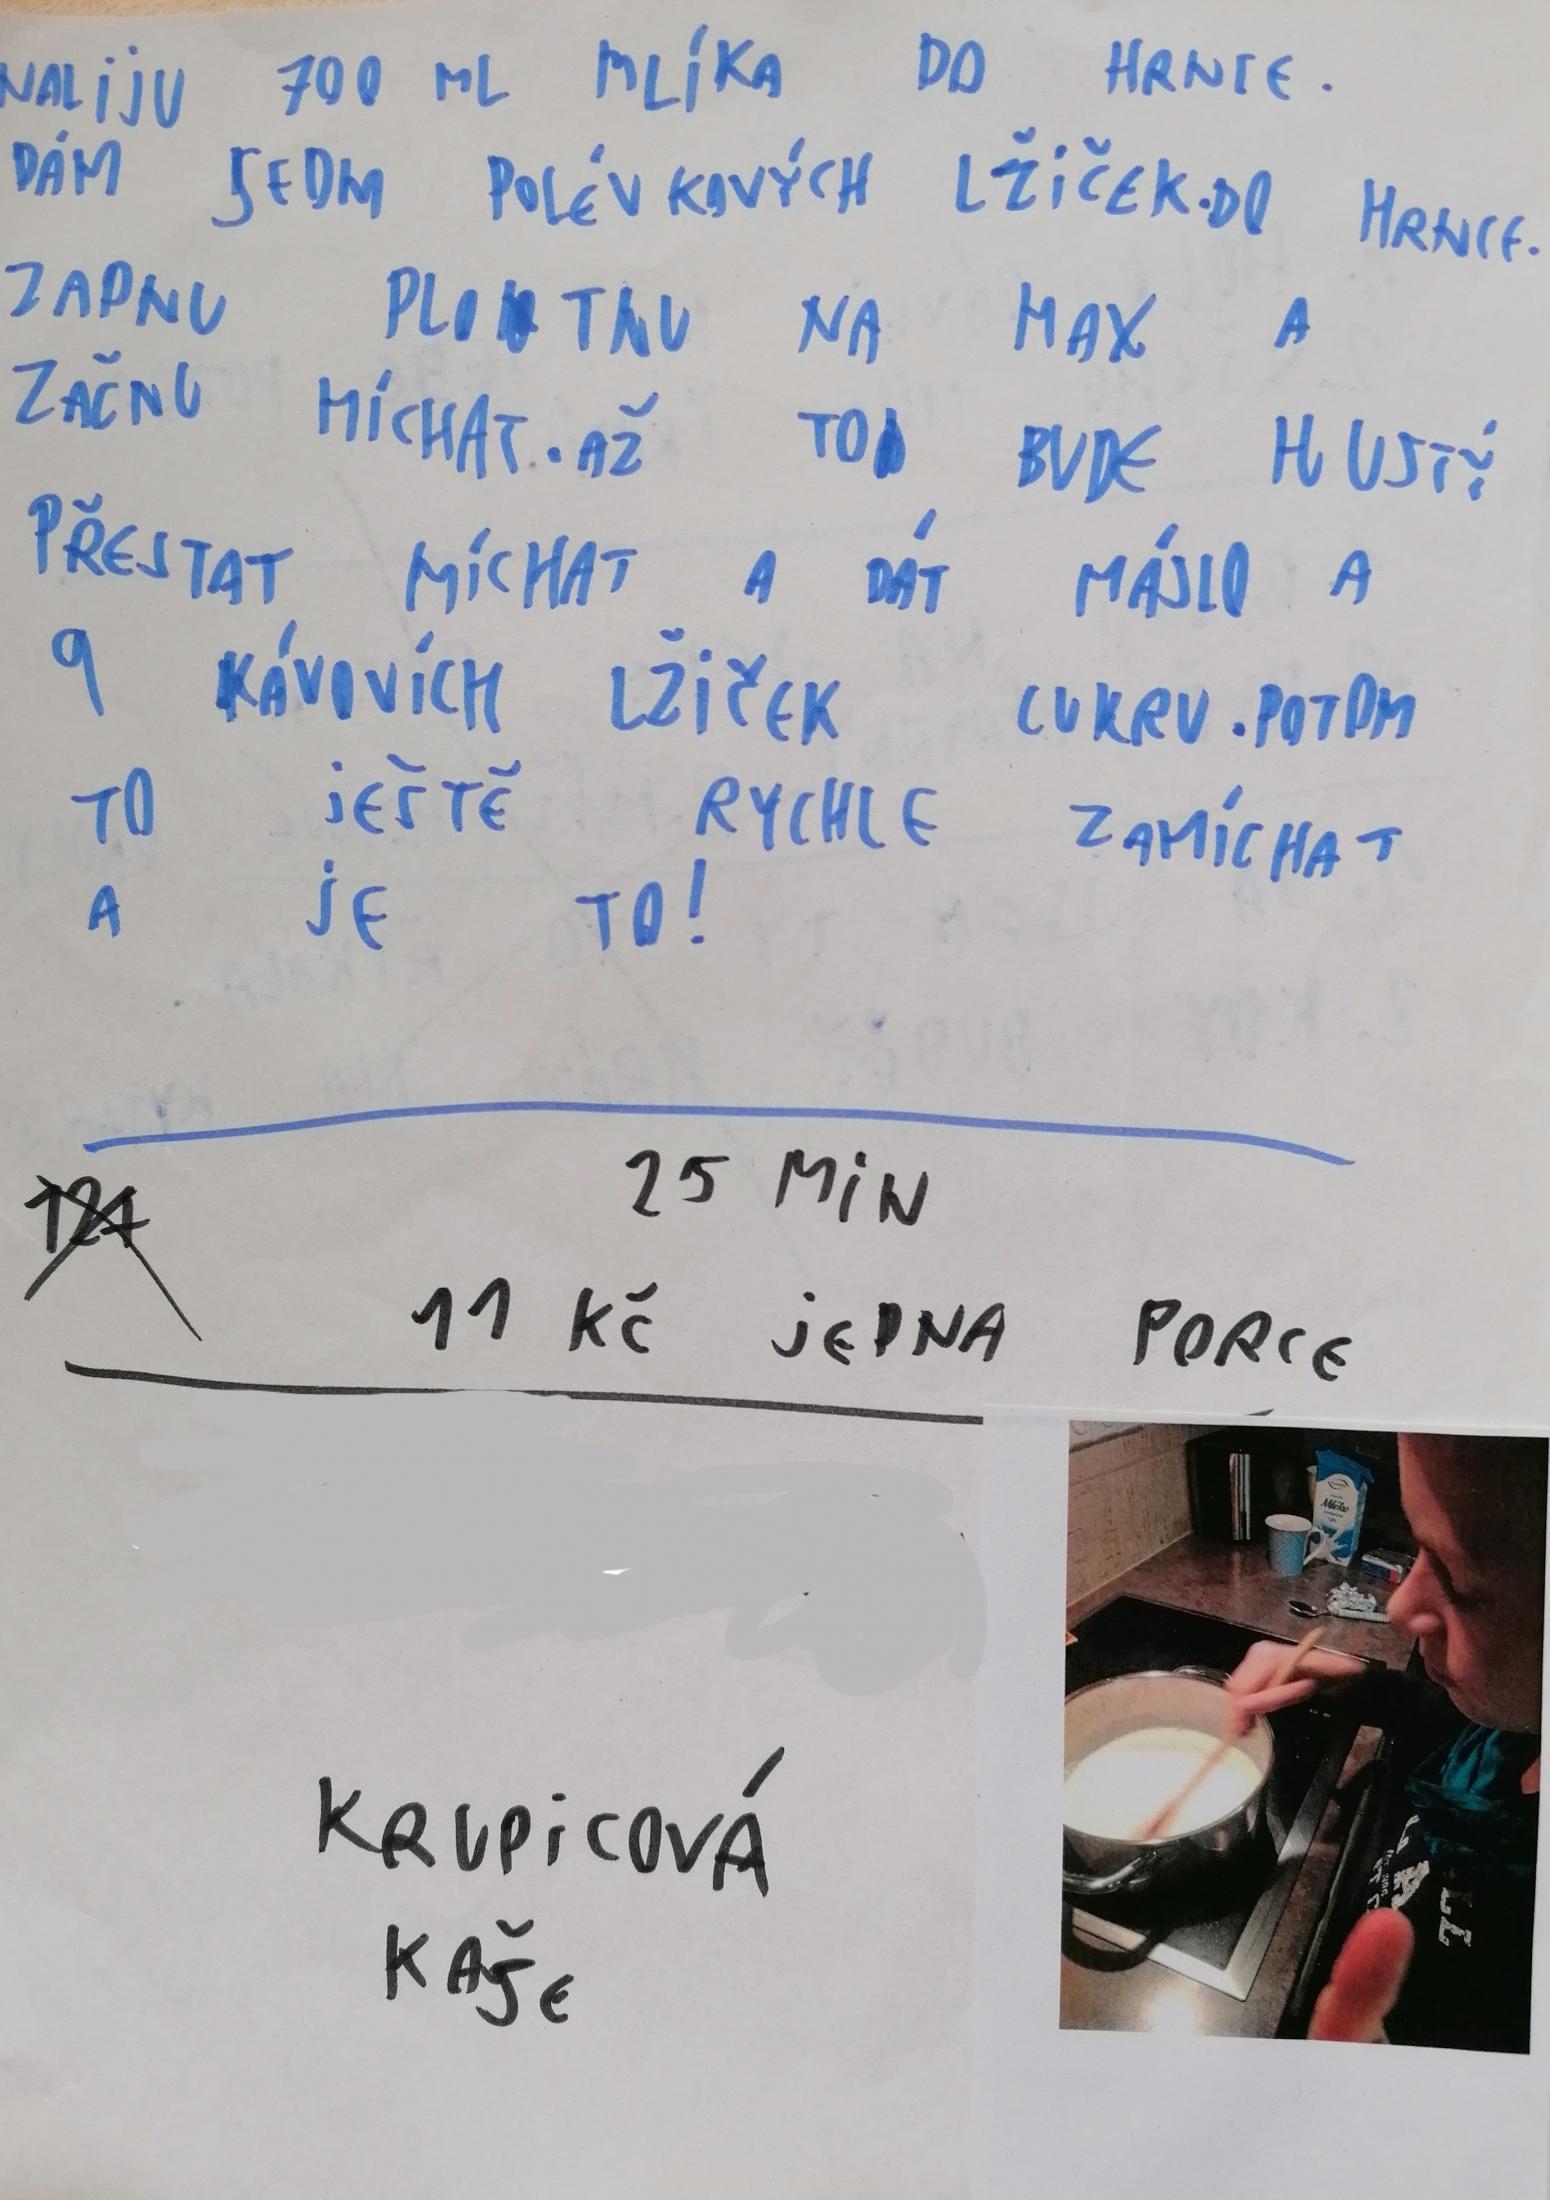 NALIJU 700 ML MLÍKA DO HRNCE.
DÁM SEDM POLÉVKOVÝCH LŽIČEK.DO HRNCE.
ZAPNU PLOTNU NA MAX A
ZAČNU MÍCHAT.AŽ TO BUDE HUSTÝ
PŘESTAT MÍCHAT A DÁT MÁSLO A
9 KÁVOVÍCH LŽIČEK CUKRU.POTOM
TO JEŠTĚ RYCHLE ZAMÍCHAT
A JE TO!
25 MIN
11 KČ JEDNA PORCE
KRUPICOVÁ
KAŠE
Mléko
77